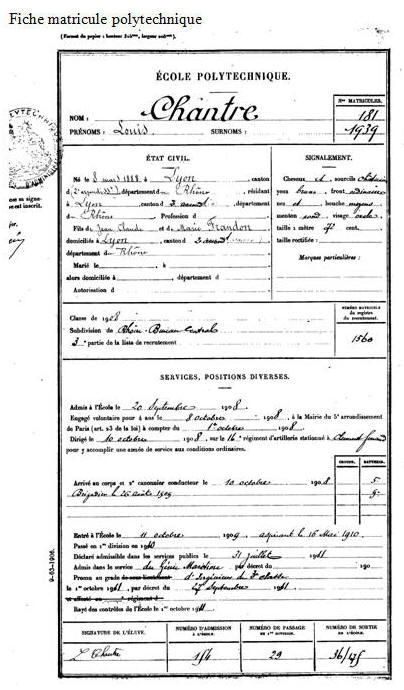 Fiche matricule polytechnique
ÉCOLE POLYTECHNIQUE.
NOM : Chantre
PRÉNOMS : Louis SURNOMS :
Nos MATRICULES.
181
1939
ÉTAT CIVIL.
Né le 8 mars 1888 à Lyon, canton
département du Rhône, résidant
à Lyon canton d
d Rhône, Profession d
Fils de Jean Claude et de Marie Frandon
domiciliés à Lyon, canton d
département du Rhône
Marié le à
alors domiciliée à , département d
Autorisation d
SIGNALEMENT.
Cheveux et sourcils châtains
yeux bruns, front ordinaire
nez et bouche moyens
menton rond, visage ovale
taille : 1 mètre cent.
taille rectifiée :
Marques particulières :
Classe de 1908
Subdivision de Rhône - Bureau Central
3e partie de la liste de recrutement
NUMÉRO MATRICULE
du registre
du recrutement.
1560
SERVICES, POSITIONS DIVERSES.
Admis à l'École le 20 Septembre 1908.
Engagé volontaire pour 4 ans le 8 octobre 1908, à la Mairie du 5e arrondissement
de Paris (art. 23 de la loi) à compter du 1er octobre
Dirigé le 10 octobre 1908, sur le 16e régiment d'artillerie stationné à Clermont
pour y accomplir une année de service aux conditions ordinaires.
Arrivé au corps et 2e canonnier conducteur le 10 octobre 1908
5
Brigadier le 26 août 1909
Entré à l'École le 11 octobre 1909 aspirant le 16 Mai 1910.
Passé en 1re division en 1910
Déclaré admissible dans les services publics le 31 juillet 1911
Admis dans le service du Génie Maritime, par décret du 190
Promu au grade d'Ingénieur de 3e classe
le 1er octobre 1911, par décret du 27 Septembre 1911
Rayé des contrôles de l'École le 1er octobre 1911
SIGNATURE DE L'ÉLÈVE.
NUMÉRO D'ADMISSION
à L'ÉCOLE.
NUMÉRO DE PASSAGE
en 1re DIVISION.
NUMÉRO DE SORTIE
de L'ÉCOLE.
L. Chantre
154
29
36/175